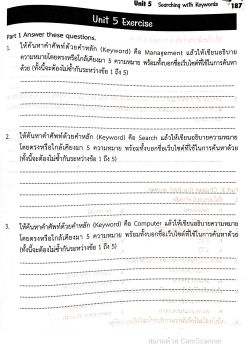 Unit 5 Searching with Keywords 187
Unit 5 Exercise
Part 1 Answer these questions.
1. ให้ค้นหาคำศัพท์ด้วยคำหลัก (Keyword) คือ Management แล้วให้เขียนอธิบาย
ความหมายโดยตรงหรือใกล้เคียงมา 5 ความหมาย พร้อมทั้งบอกชื่อเว็บไซต์ที่ใช้ในการค้นหา
ด้วย (ทั้งนี้จะต้องไม่ซ้ำกันระหว่างข้อ 1 ถึง 5)
2. ให้ค้นหาคำศัพท์ด้วยคำหลัก (Keyword) คือ Search แล้วให้เขียนอธิบายความหมาย
โดยตรงหรือใกล้เคียงมา 5 ความหมาย พร้อมทั้งบอกชื่อเว็บไซต์ที่ใช้ในการค้นหาด้วย
(ทั้งนี้จะต้องไม่ซ้ำกันระหว่างข้อ 1 ถึง 5)
3. ให้ค้นหาคำศัพท์ด้วยคำหลัก (Keyword) คือ Computer แล้วให้เขียนอธิบายความหมาย
โดยตรงหรือใกล้เคียงมา 5 ความหมาย พร้อมทั้งบอกชื่อเว็บไซต์ที่ใช้ในการค้นหาด้วย
(ทั้งนี้จะต้องไม่ซ้ำกันระหว่างข้อ 1 ถึง 5)
สแกนด้วย CamScanner